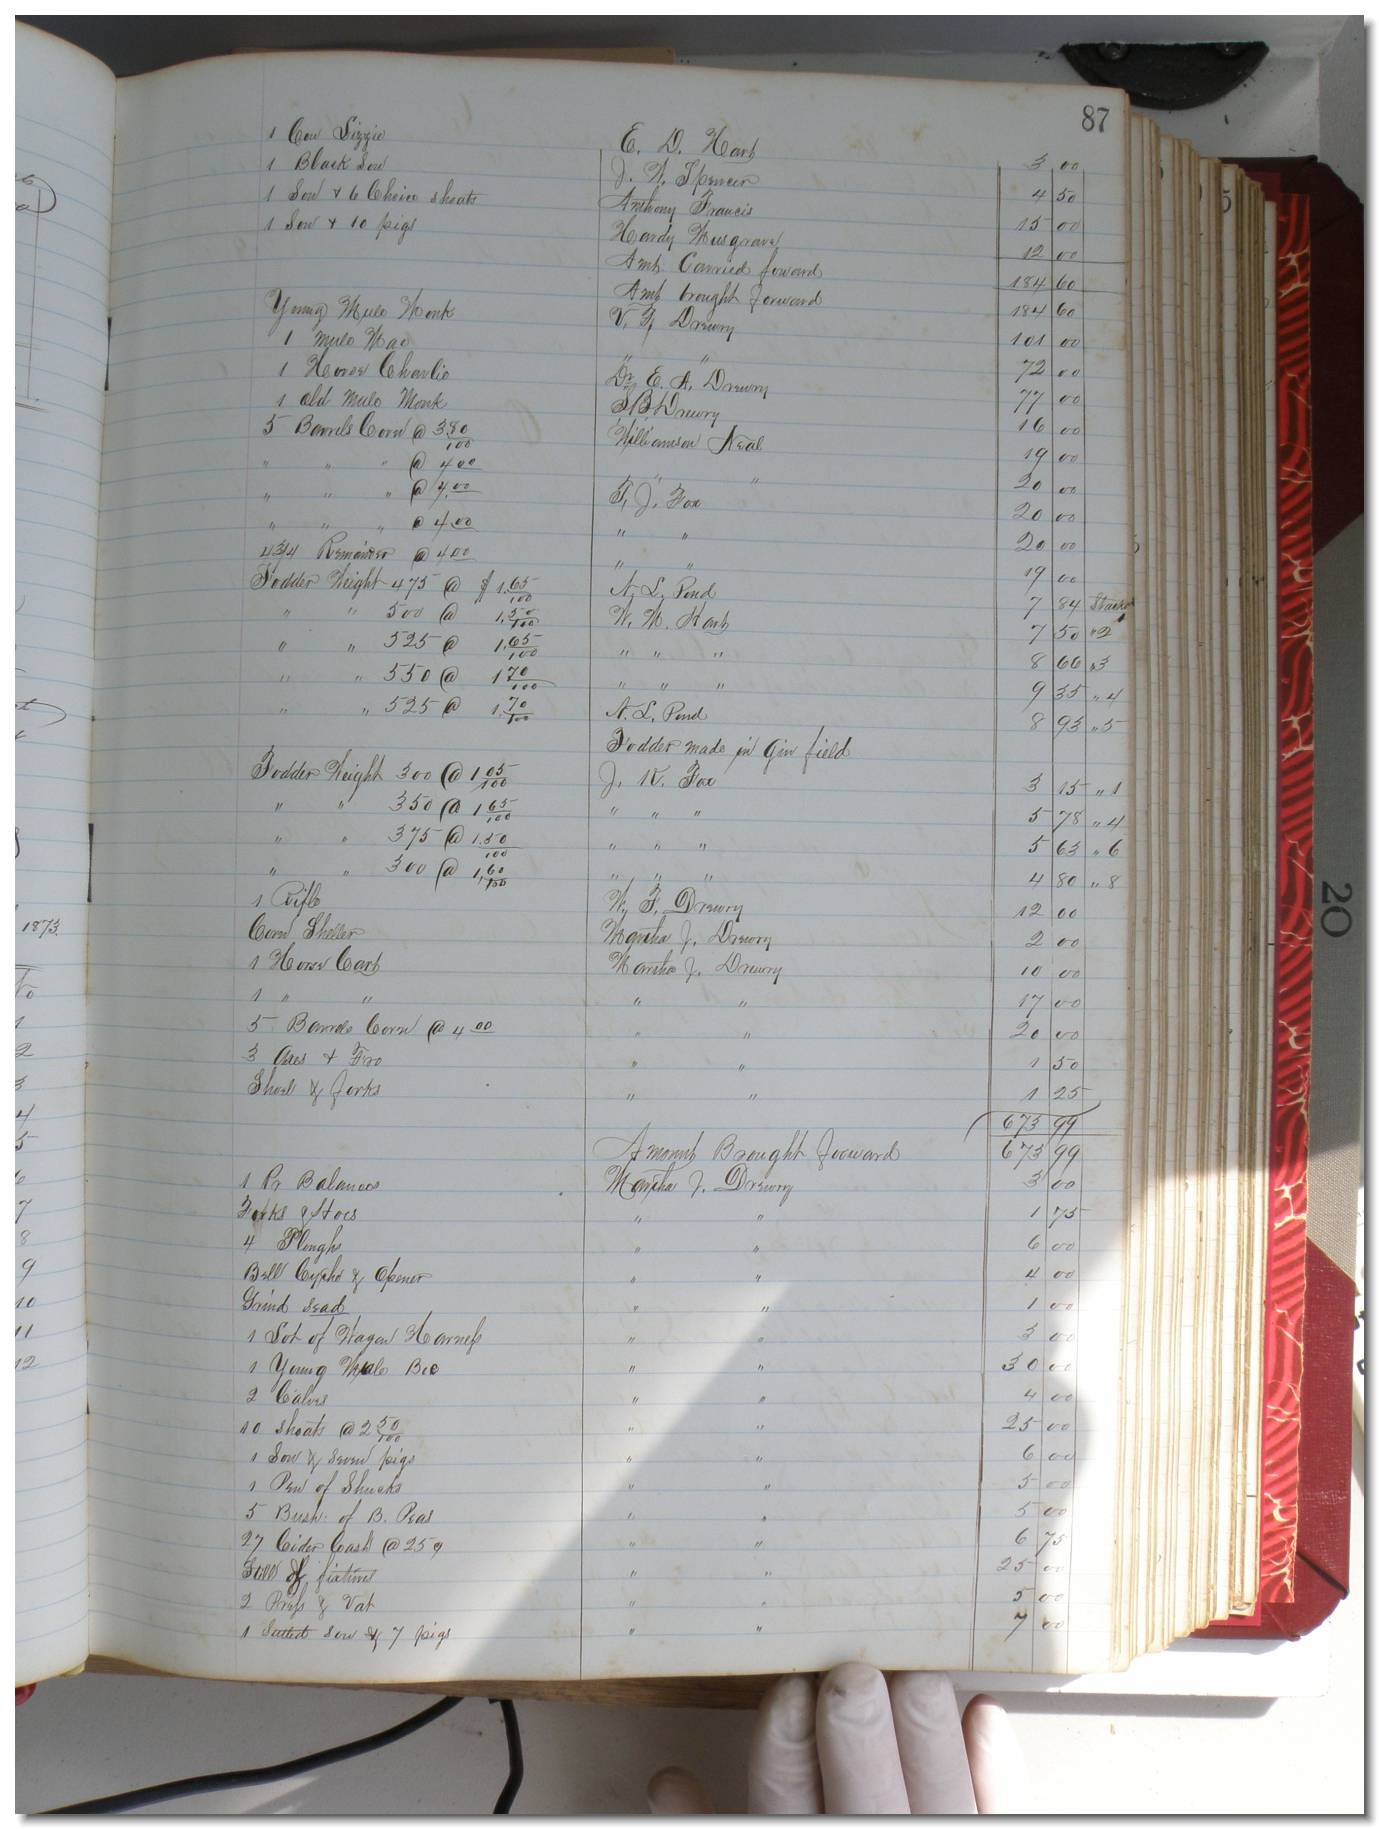 87
1 Cow Lizzie E. D. Harb 3 00
1 Black Sow J. W. Spencer 4 50
1 Sow & 6 Choice shoats Anthony Francis 15 00
1 Sow & 10 pigs Hardy Musgrave 12 00
Amt. Carried foward 184 60
Amt brought forward 184 60
Young Mule Monk V. F. Drewry 101 00
1 mule Mac " " 72 00
1 Horse Charlie Dr. E. A. Drewry 77 00
1 old Mule Monk T B Drewry 16 00
5 Barrels Corn @ 3 80/100 Williamson Neal 19 00
" " " @ 4 00 " " 20 00
" " " @ 4.00 T. J. Fox 20 00
" " " @ 4 00 " " 20 00
4 3/4 Remainder @ 4 00 " " 19 00
Fodder Weight 475 @ $ 1.65/100 N. L. Pond 7 84 Stack 1
" " 500 @ 1.50/100 W. M. Harb 7 50 " 2
" " 525 @ 1.65/100 " " " 8 66 " 3
" " 550 @ 1 70/100 " " " 9 35 " 4
" " 525 @ 1.70/100 N. L. Pond 8 93 " 5
Fodder made in Gin field
Fodder Weight 300 @ 1 05/100 J. K. Fox 3 15 " 1
" " 350 @ 1 65/100 " " " 5 78 " 4
" " 375 @ 1.50/100 " " " 5 63 " 6
" " 300 @ 1,60/100 " " " 4 80 " 8
1 Rifle W. F. Drewry 12 00
Corn Sheller Martha J. Drewry 2 00
1 Horse Cart Martha J. Drewry 10 00
1 " " " " 17 00
5 Barrels Corn @ 4 00 " " 20 00
3 Axes & Fro " " 1 50
Shovel & forks " " 1 25
673 99
Amount Brought foward 673 99
1 Pr Balances Martha J. Drewry 3 00
Forks & Hoes " " 1 75
4 Ploughs " " 6 00
Bell & Opener " " 4 00
Grind " " 1 00
1 Set of Wagon Harness " " 3 00
1 Young Mule Bec " " 30 00
2 Calves " " 4 00
10 shoats @ 2 50/100 " " 25 00
1 Sow & seven pigs " " 6 00
1 Pen of Shucks " " 5 00
5 Bush: of B. Peas " " 5 00
27 Cider Cask @ 25¢ " " 6 75
& fixtures " " 25 00
2 Press & Vat " " 5 00
1 sow & 7 pigs " " 7 00
1873.
1
2
3
4
5
6
7
8
9
10
11
12
20
5